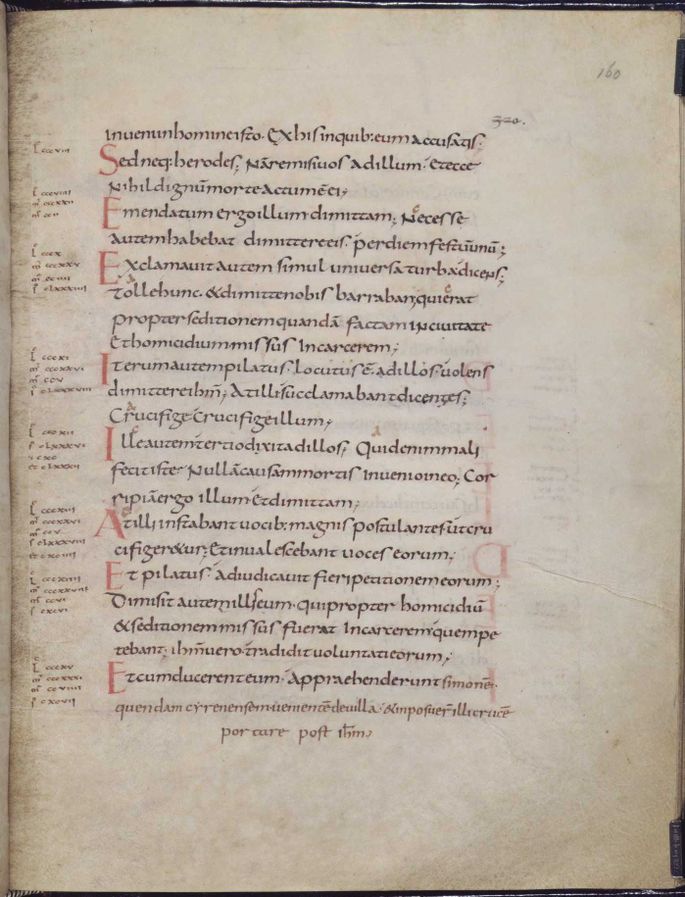 160
320.
invenio in homine isto. Ex his in quib: eum accusatis;
Sed neq: herodes; Nā remisi vos ad illum. Et ecce
Nihil dignū morte actum ē ei;
Emendatum ergo illum dimittam; Necesse
autem habebat dimittere eis. per diem festū unū;
Exclamavit autem simul universa turba dicens;
Tolle hunc. & dimitte nobis barraban; qui erat
propter seditionem quandā factam in civitate
Et homicidium missus In carcerem;
Iterum autem pilatus. locutus ē. ad illos. volens
dimittere ihm; At illi succlamabant dicentes;
Crucifige Crucifige illum;
Ille autem tertio dixit ad illos; Quid enim mali
fecit iste? Nullā causam mortis invenio in eo; Cor
ripiā ergo illum. Et dimittam;
At illi instabant vocib: magnis postulantes. ut cru
cifiger&ur; Et invalescebant voces eorum;
Et pilatus. adiudicavit fieri petitionem eorum;
Dimisit autem illis eum. qui propter homicidiū
& seditionem missus fuerat In carcerem. quem pe
tebant; ihm vero. tradidit voluntati eorum;
Et cum ducerent eum. Appraehenderunt simonē.
quendam cyrenensem. venientē de villa. & imposuer illi crucē
portare post ihm;